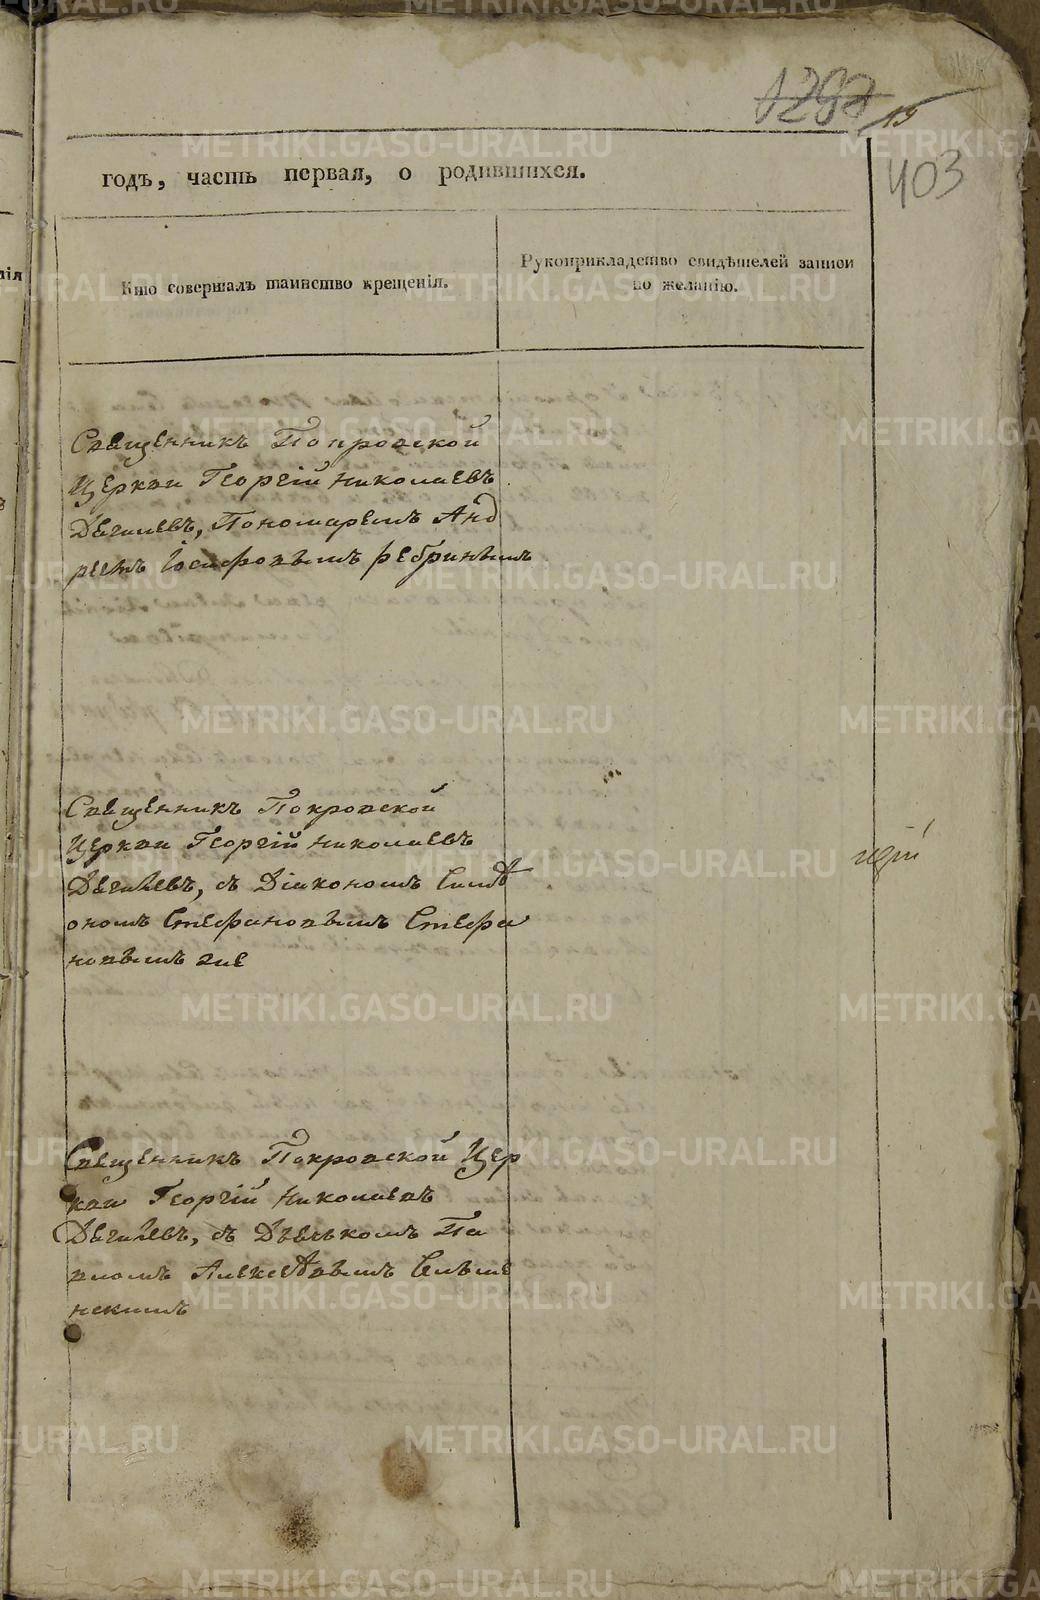 15
403
годъ, часть первая, о родившихся.
Кто совершалъ таинство крещенія.
Рукоприкладство свидѣтелей записи
по желанію.
Священникъ Покровской
Церкви Георгій Николаевъ
Дягилевъ, Пономаремъ Анд
реемъ Іосифовымъ
Священникъ Покровской
Церкви Георгій Николаевъ
Дягилевъ, съ Діакономъ Симе
ономъ Стефановымъ Стефа
новымъ же
Священникъ Покровской Цер
кви Георгій Николаевъ
Дягилевъ, съ Дьячкомъ Па
вломъ Алексѣевымъ
METRIKI.GASO-URAL.RU